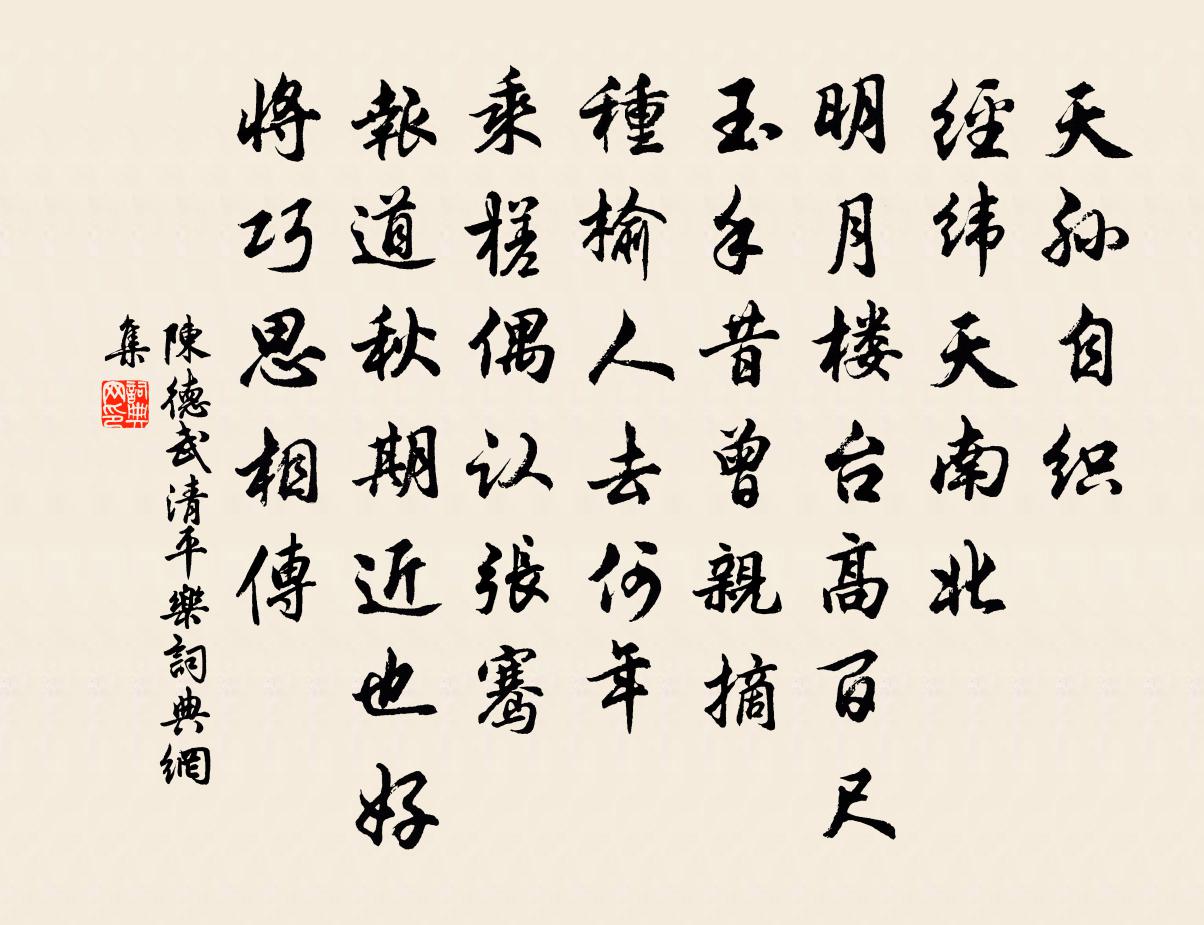 天孙自织
經纬天南北
明月楼台高百尺
玉手昔曾親摘
種榆人去何年
乘槎偶认張骞
報道秋期近也好
将巧思相傳
陳德武清平樂詞典網
集
詞典网印